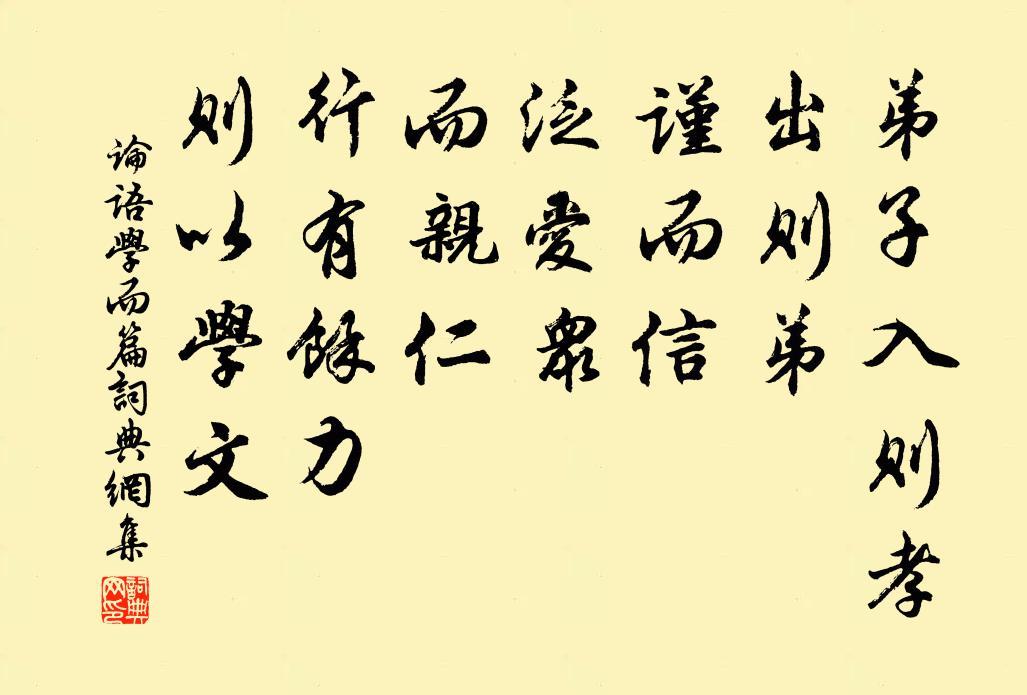 弟子入則孝
出則弟
謹而信
泛愛眾
而親仁
行有餘力
則以學文
論語學而篇詞典網集
詞典網印